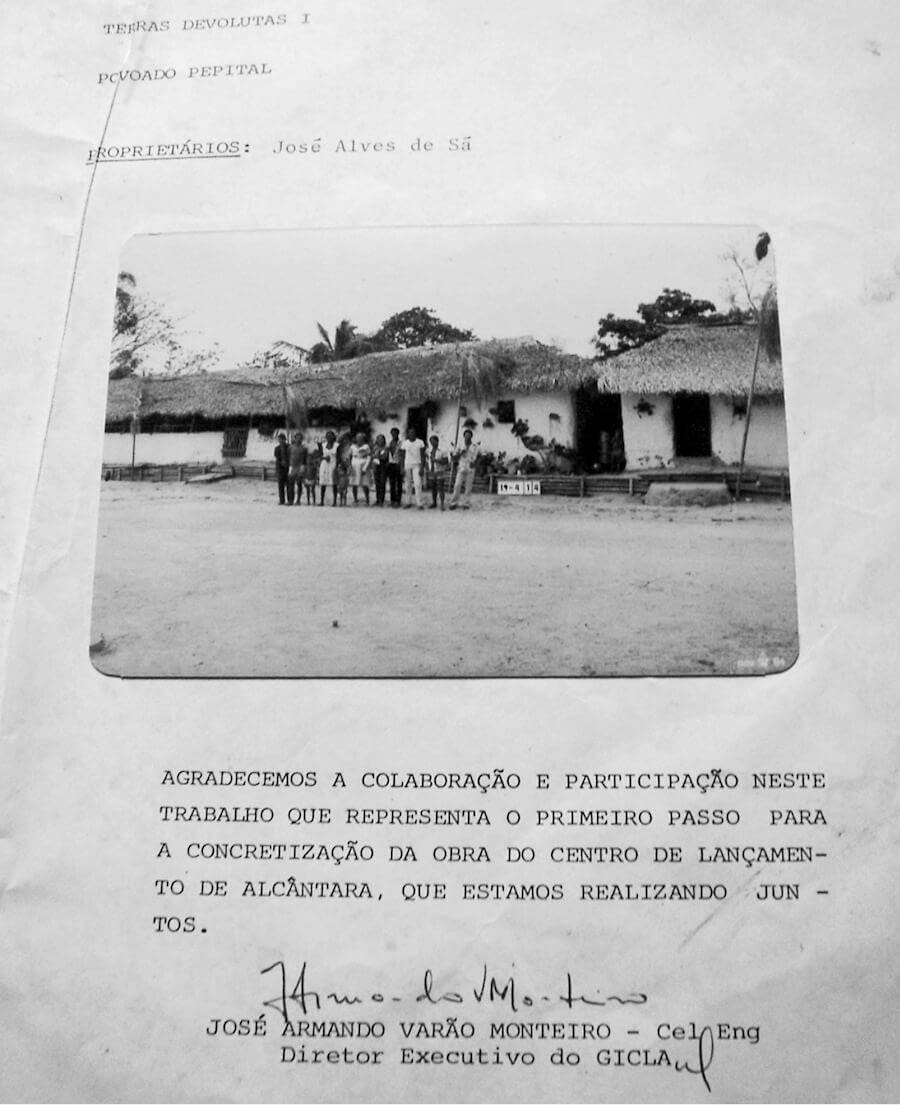 TERRAS DEVOLUTAS I
POVOADO PEPITAL
PROPRIETÁRIOS: José Alves de Sá
AGRADECEMOS A COLABORAÇÃO E PARTICIPAÇÃO NESTE
TRABALHO QUE REPRESENTA O PRIMEIRO PASSO PARA
A CONCRETIZAÇÃO DA OBRA DO CENTRO DE LANÇAMEN-
TO DE ALCÂNTARA, QUE ESTAMOS REALIZANDO JUN -
TOS.
JOSÉ ARMANDO VARÃO MONTEIRO - Cel Eng
Diretor Executivo do GICLA